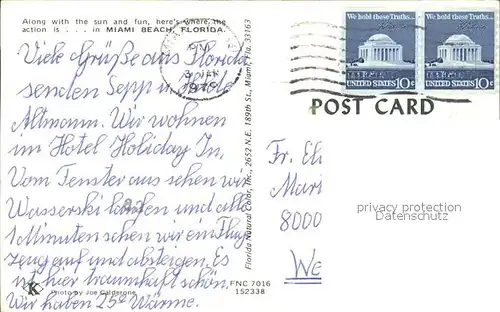 Along with the sun and fun, here's where the
action is . . . in MIAMI BEACH, FLORIDA.
Viele Grüße aus Florida
senden Sepp u.
Altmann. Wir wohnen
im Hotel Holiday In,
Vom Fenster aus sehen wir
Wasserski laufen und alle
1 Minuten sehen wir ein Flug
zeug auf und absteigen. Es
ist hier traumhaft schön.
Wir haben 25° Wärme.
K
Photo by Joe Calderone
FNC 7016
152338
Florida Natural Color, Inc., 2652 N.E. 189th St., Miami, Fla. 33163
We hold these Truths...
UNITED STATES 10c
We hold these Truths...
UNITED STATES 10c
POST CARD
Fr. Eli
Mari
8000
We
privacy protection
Datenschutz